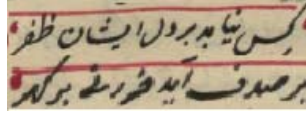 کس نیابد بر دل ایشان ظفر
بر صدف آید ضرر نی بر گهر